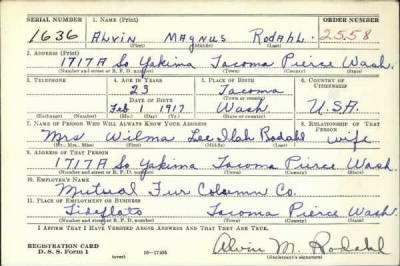 SERIAL NUMBER 1. NAME (Print) ORDER NUMBER
1636 ALVIN MAGNUS RODAHL. 2558
(First) (Middle) (Last)
2. ADDRESS (Print)
1717A So Yakima Tacoma Pierce Wash.
(Number and street or R. F. D. number) (Town) (County) (State)
3. TELEPHONE 4. AGE IN YEARS 5. PLACE OF BIRTH 6. COUNTRY OF CITIZENSHIP
23 Tacoma
(Town or county)
DATE OF BIRTH
Feb 1 1917 Wash. U.S.A.
(Exchange) (No.) (Mo.) (Day) (Yr.) (State or country)
7. NAME OF PERSON WHO WILL ALWAYS KNOW YOUR ADDRESS 8. RELATIONSHIP OF THAT PERSON
Mrs Wilma Lee Ilah Rodahl wife
(Mr., Mrs., Miss) (First) (Middle) (Last)
9. ADDRESS OF THAT PERSON
1717A So Yakima Tacoma Pierce Wash.
(Number and street or R. F. D. number) (Town) (County) (State)
10. EMPLOYER'S NAME
Mutual Fur Column Co.
11. PLACE OF EMPLOYMENT OR BUSINESS
Tideflats Tacoma Pierce Wash.
(Number and street or R. F. D. number) (Town) (County) (State)
I AFFIRM THAT I HAVE VERIFIED ABOVE ANSWERS AND THAT THEY ARE TRUE.
REGISTRATION CARD
D. S. S. Form 1 16—17105 Alvin M. Rodahl
(over) (Registrant's signature)